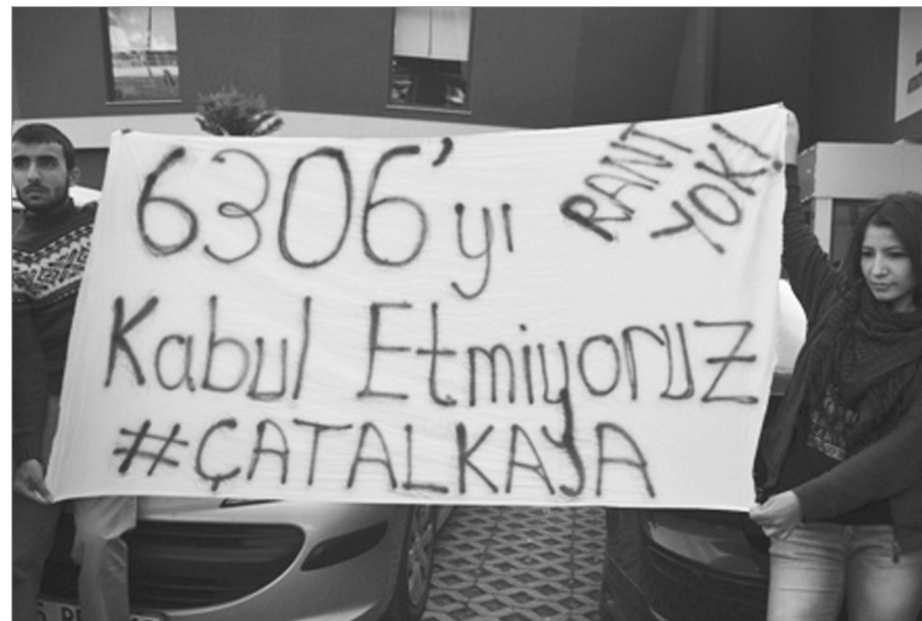 6306'yı
RANT
YOK!
Kabul Etmiyoruz
#ÇATALKAYA